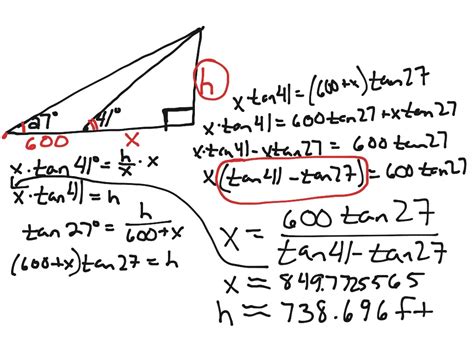 h
27°
41°
600
x
x · tan 41° = h/x · x
x · tan 41 = h
tan 27° = h/600+x
(600+x) tan 27 = h
x tan 41 = (600+x) tan 27
x · tan 41 = 600 tan 27 + x tan 27
x · tan 41 - x tan 27 = 600 tan 27
x (tan 41 - tan 27) = 600 tan 27
x = 600 tan 27 / tan 41 - tan 27
x ≈ 849.7725565
h ≈ 738.696 ft